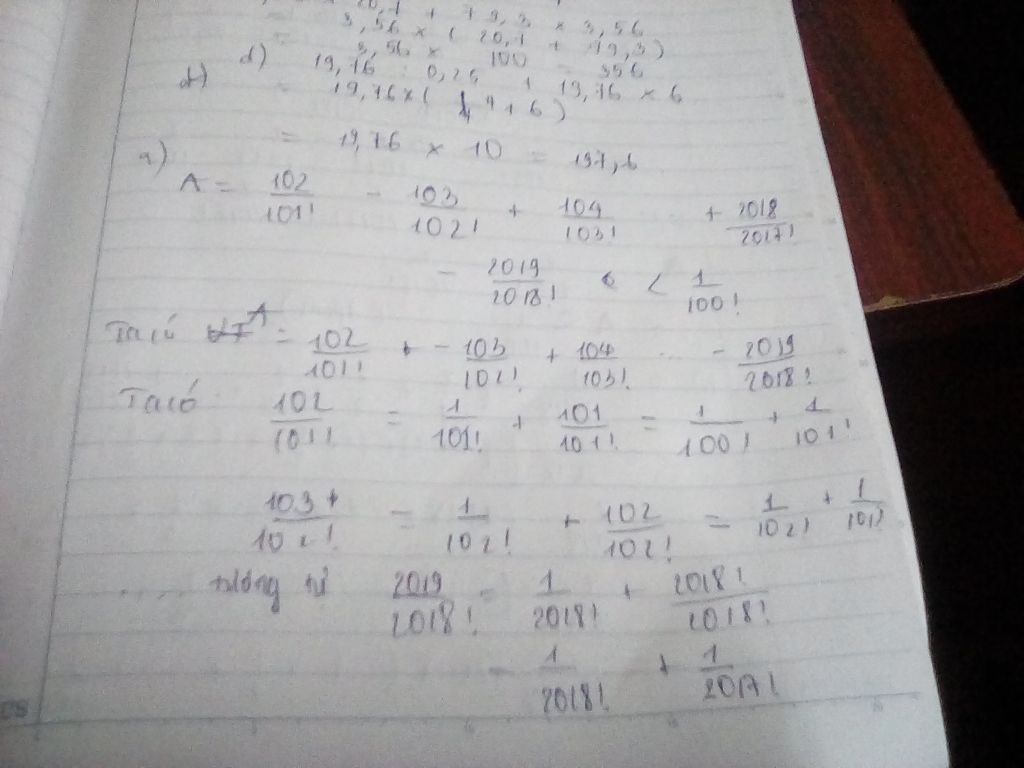 20,1 + 79,3 × 3,56
= 3,56 × ( 20,1 + 79,3 )
= 3,56 × 100 = 356
d) 19,76 : 0,25 + 19,76 × 6
d) = 19,76 × ( 4 + 6 )
= 19,76 × 10 = 197,6
a)
A = 102/101! - 103/102! + 104/103! + 2018/2017!
- 2019/2018! < 1/100!
Ta có A = 102/101! - 103/102! + 104/103! ... - 2019/2018!
Ta có 102/101! = 1/101! + 101/101! = 1/100! + 1/101!
103/102! = 1/102! + 102/102! = 1/102! + 1/101!
.... tương tự 2019/2018! = 1/2018! + 2018!/2018!
= 1/2018! + 1/2017!